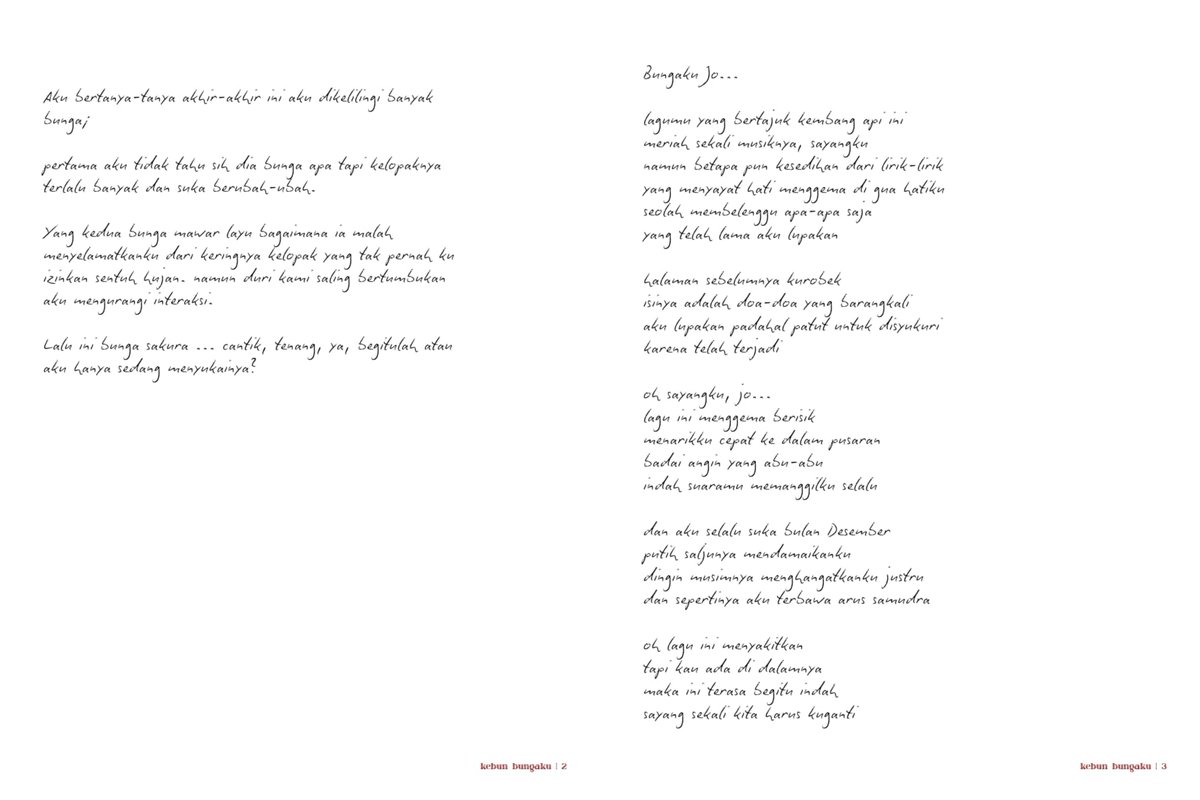 Aku bertanya-tanya akhir-akhir ini aku dikelilingi banyak
bunga;
pertama aku tidak tahu sih dia bunga apa tapi kelopaknya
terlalu banyak dan suka berubah-ubah.
Yang kedua bunga mawar layu bagaimana ia malah
menyelamatkanku dari keringnya kelopak yang tak pernah ku
izinkan sentuh hujan. namun duri kami saling bertumbukan
aku mengurangi interaksi.
Lalu ini bunga sakura ... cantik, tenang, ya, begitulah atau
aku hanya sedang menyukainya?
kebun bungaku | 2
Bungaku Jo...
lagumu yang bertajuk kembang api ini
meriah sekali musiknya, sayangku
namun betapa pun kesedihan dari lirik-lirik
yang menyayat hati menggema di gua hatiku
seolah membelenggu apa-apa saja
yang telah lama aku lupakan
halaman sebelumnya kurobek
isinya adalah doa-doa yang barangkali
aku lupakan padahal patut untuk disyukuri
karena telah terjadi
oh sayangku, jo...
lagu ini menggema berisik
menarikku cepat ke dalam pusaran
badai angin yang abu-abu
indah suaramu memanggilku selalu
dan aku selalu suka bulan Desember
putih saljunya mendamaikanku
dingin musimnya menghangatkanku justru
dan sepertinya aku terbawa arus samudra
oh lagu ini menyakitkan
tapi kau ada di dalamnya
maka ini terasa begitu indah
sayang sekali kita harus kuganti
kebun bungaku | 3